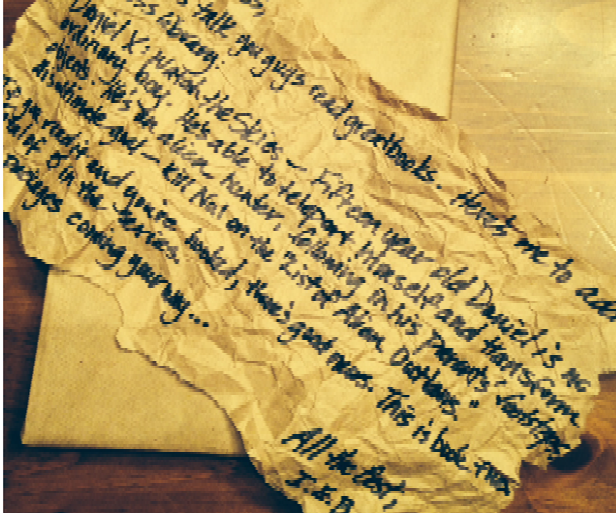 talk you guys read great books. Here's one to add
class library:
Daniel X: Watch the Skies - Fifteen year old Daniel is no
ordinary boy. He's able to teleport himself and transform
objects. He's an alien hunter, following in his parents' footsteps.
ultimate goal - Kill No1 on the "List of Alien Outlaws."
If you read it and you're hooked, there's good news. This is book two
half of in the series.
packages coming your way...
All the Best,
I.S.B